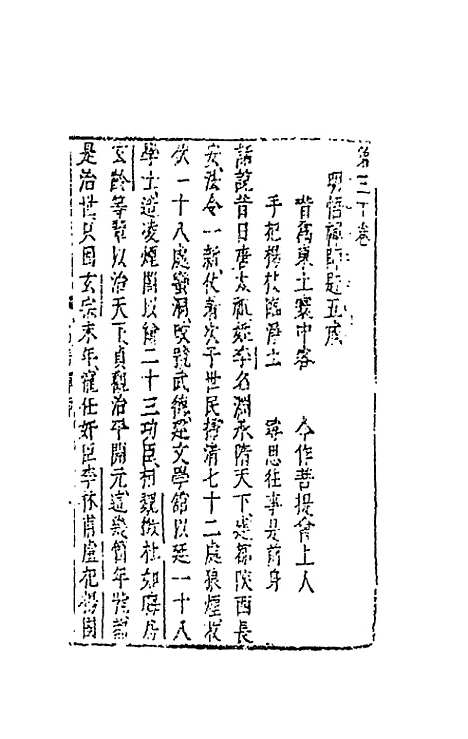 第三十卷
明悟禪師趕五戒
昔爲東土寰中客　今作菩提會上人
手把楊枝臨淨土　尋思往事是前身
話說昔日唐太祖姓李名淵承隋天下建都陝西長
安法令一新仗着次子世民掃清七十二處狼煙收
伏一十八處蠻洞改號武德建文學館以延一十八
學士造凌煙閣以繪二十三功臣相魏徵杜如晦房
玄齡等輩以治天下貞觀治平開元這幾個年號都
是治世只因玄宗末年寵任奸臣李林甫盧杞楊國